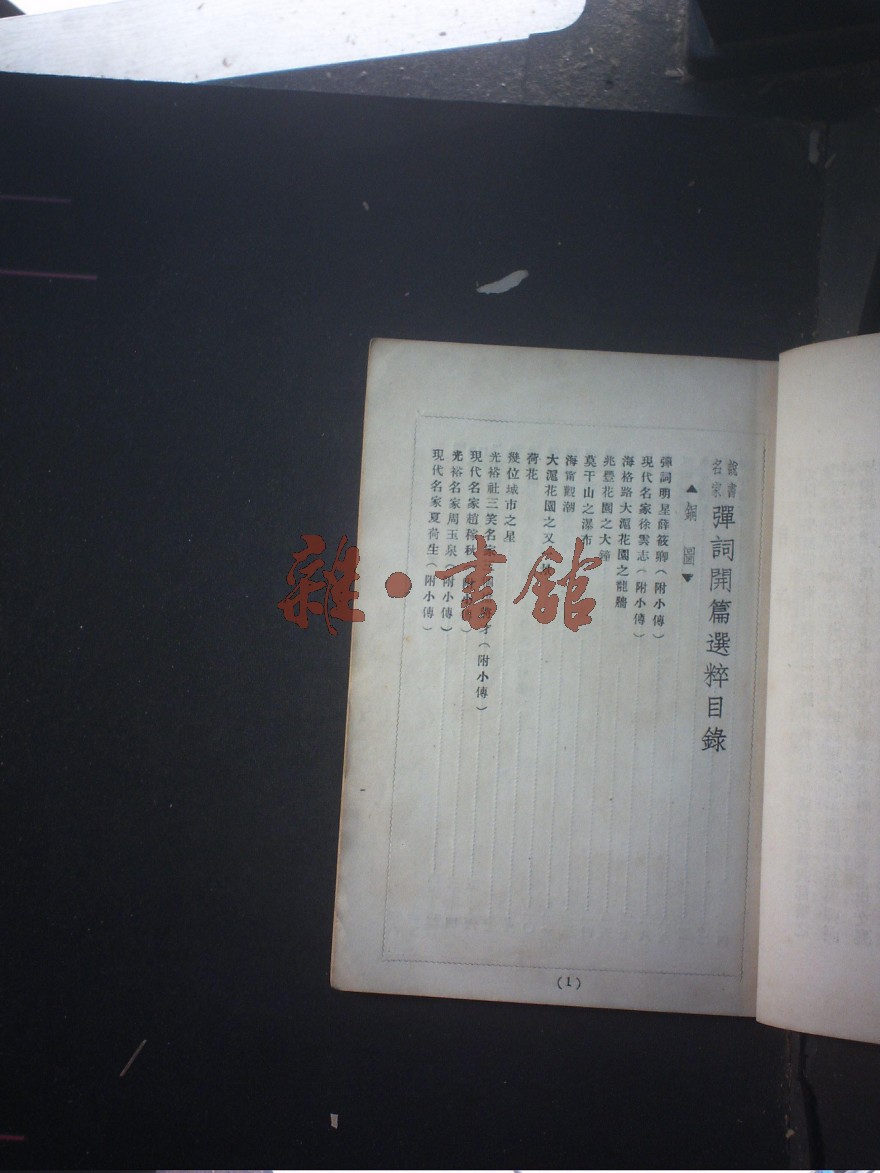 說書名家 彈詞開篇選粹目錄
▲銅圖▼
彈詞明星薛筱卿(附小傳)
現代名家徐雲志(附小傳)
海格路大滬花園之龍牆
兆豐花園之大鐘
莫干山之瀑布
海甯觀潮
大滬花園之又一
荷花
幾位城市之星
光裕社三笑名家(附小傳)
現代名家趙稼秋(附小傳)
光裕名家周玉泉(附小傳)
現代名家夏荷生(附小傳)
(1)
雜·書館